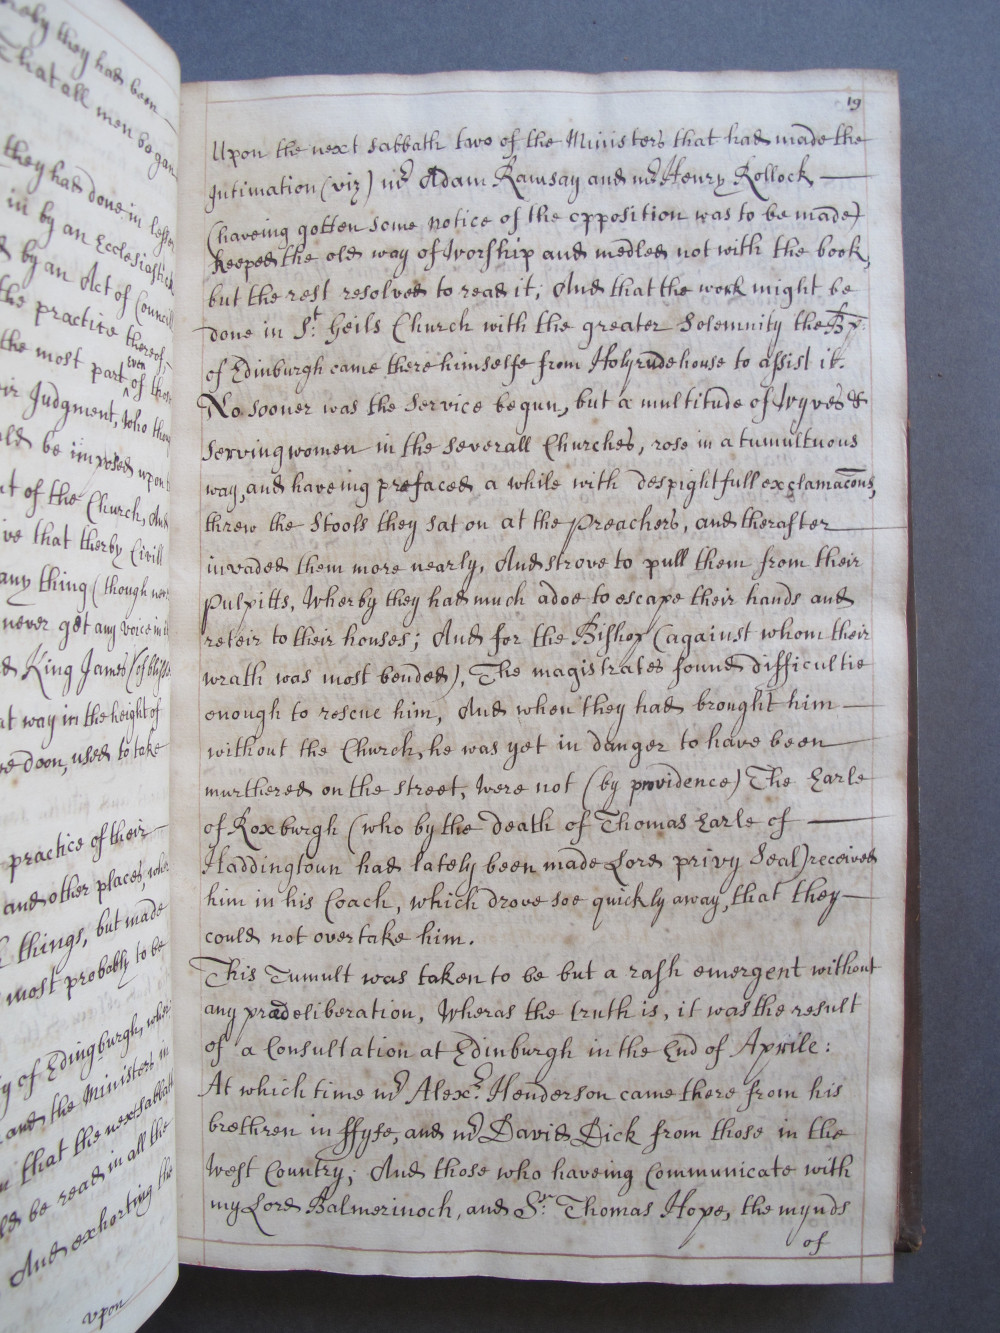 reby they had been
That all men began
they had done in lesser
in by an Ecclesiastick
d by an Act of Councill
the practice thereof,
even
the most part of those
eir Judgment, who they
uld be imposed upon
nt of the Church, And
ive that therby Civill
any thing (though never
never get any voice in
nd King James (of
at way in the height of
re doon, used to take
practice of their
and other places, wher
things, but made
most probably to be
ty of Edingburgh,
and the Ministers in
n that the next sabbath
ld be read in all the
And exhorting the
vpon
19
Upon the next sabbath two of the Ministers that had made the
Intimation (viz) mr Adam Ramsay and mr Henry Rollock
(haveing gotten some notice of the opposition was to be made)
keeped the old way of worship and medled not with the book,
but the rest resolved to read it; And that the work might be
done in St. Geils Church with the greater Solemnity the Bp:
of Edinburgh came there himselfe from Holyrudehouse to assist it.
No sooner was the Service begun, but a multitude of Wyves &
Servingwomen in the Severall Churches, rose in a tumultuous
way, and haveing prefaced a while with despightfull exclamacons,
threw the Stools they sat on at the preachers, and therafter
invaded them more nearly, And strove to pull them from their
Pulpitts, Wherby they had much adoe to escape their hands and
reteir to their houses; And for the Bishop (against whom their
wrath was most bended), The magistrates found difficultie
enough to rescue him, And when they had brought him
without the Church, he was yet in danger to have been
murthered on the street, Were not (by providence) The Earle
of Roxburgh (who by the death of Thomas Earle of
Haddingtoun had lately been made Lord privy Seal) received
him in his Coach, which drove soe quickly away, that they
could not overtake him.
This Tumult was taken to be but a rash emergent without
any prædeliberation, Wheras the truth is, it was the result
of a Consultation at Edinburgh in the End of Aprile:
At which time mr Alexr. Henderson came there from his
brethren in ffyfe, and mr David Dick from those in the
West Country; And those who haveing Communicate with
my Lord Balmerinoch, and Sr. Thomas Hope, the mynds
of